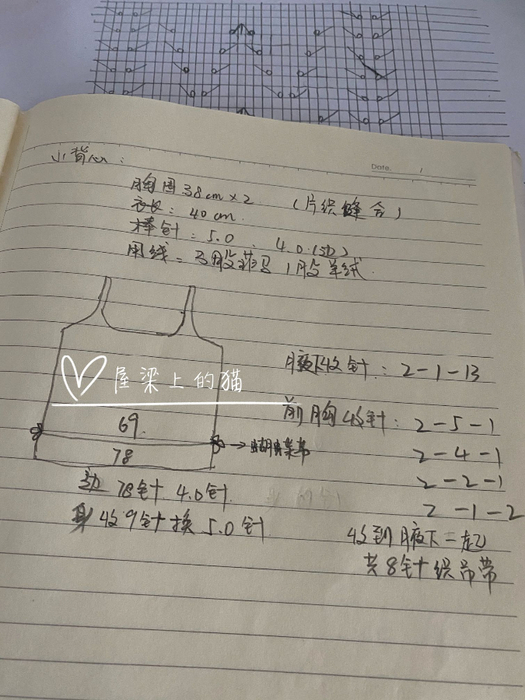 小背心:
Date. /
胸围38cm×2 (片织缝合)
衣长:40cm
棒针:5.0 4.0
用线:3股 1股羊绒
腋下收针:2-1-13
屋梁上的猫
前胸收针:2-5-1
69.
2-4-1
→蝴蝶带
78
2-2-1
边78针 4.0针
2-1-2
身收9针换5.0针
收到腋下一起
共8针织吊带